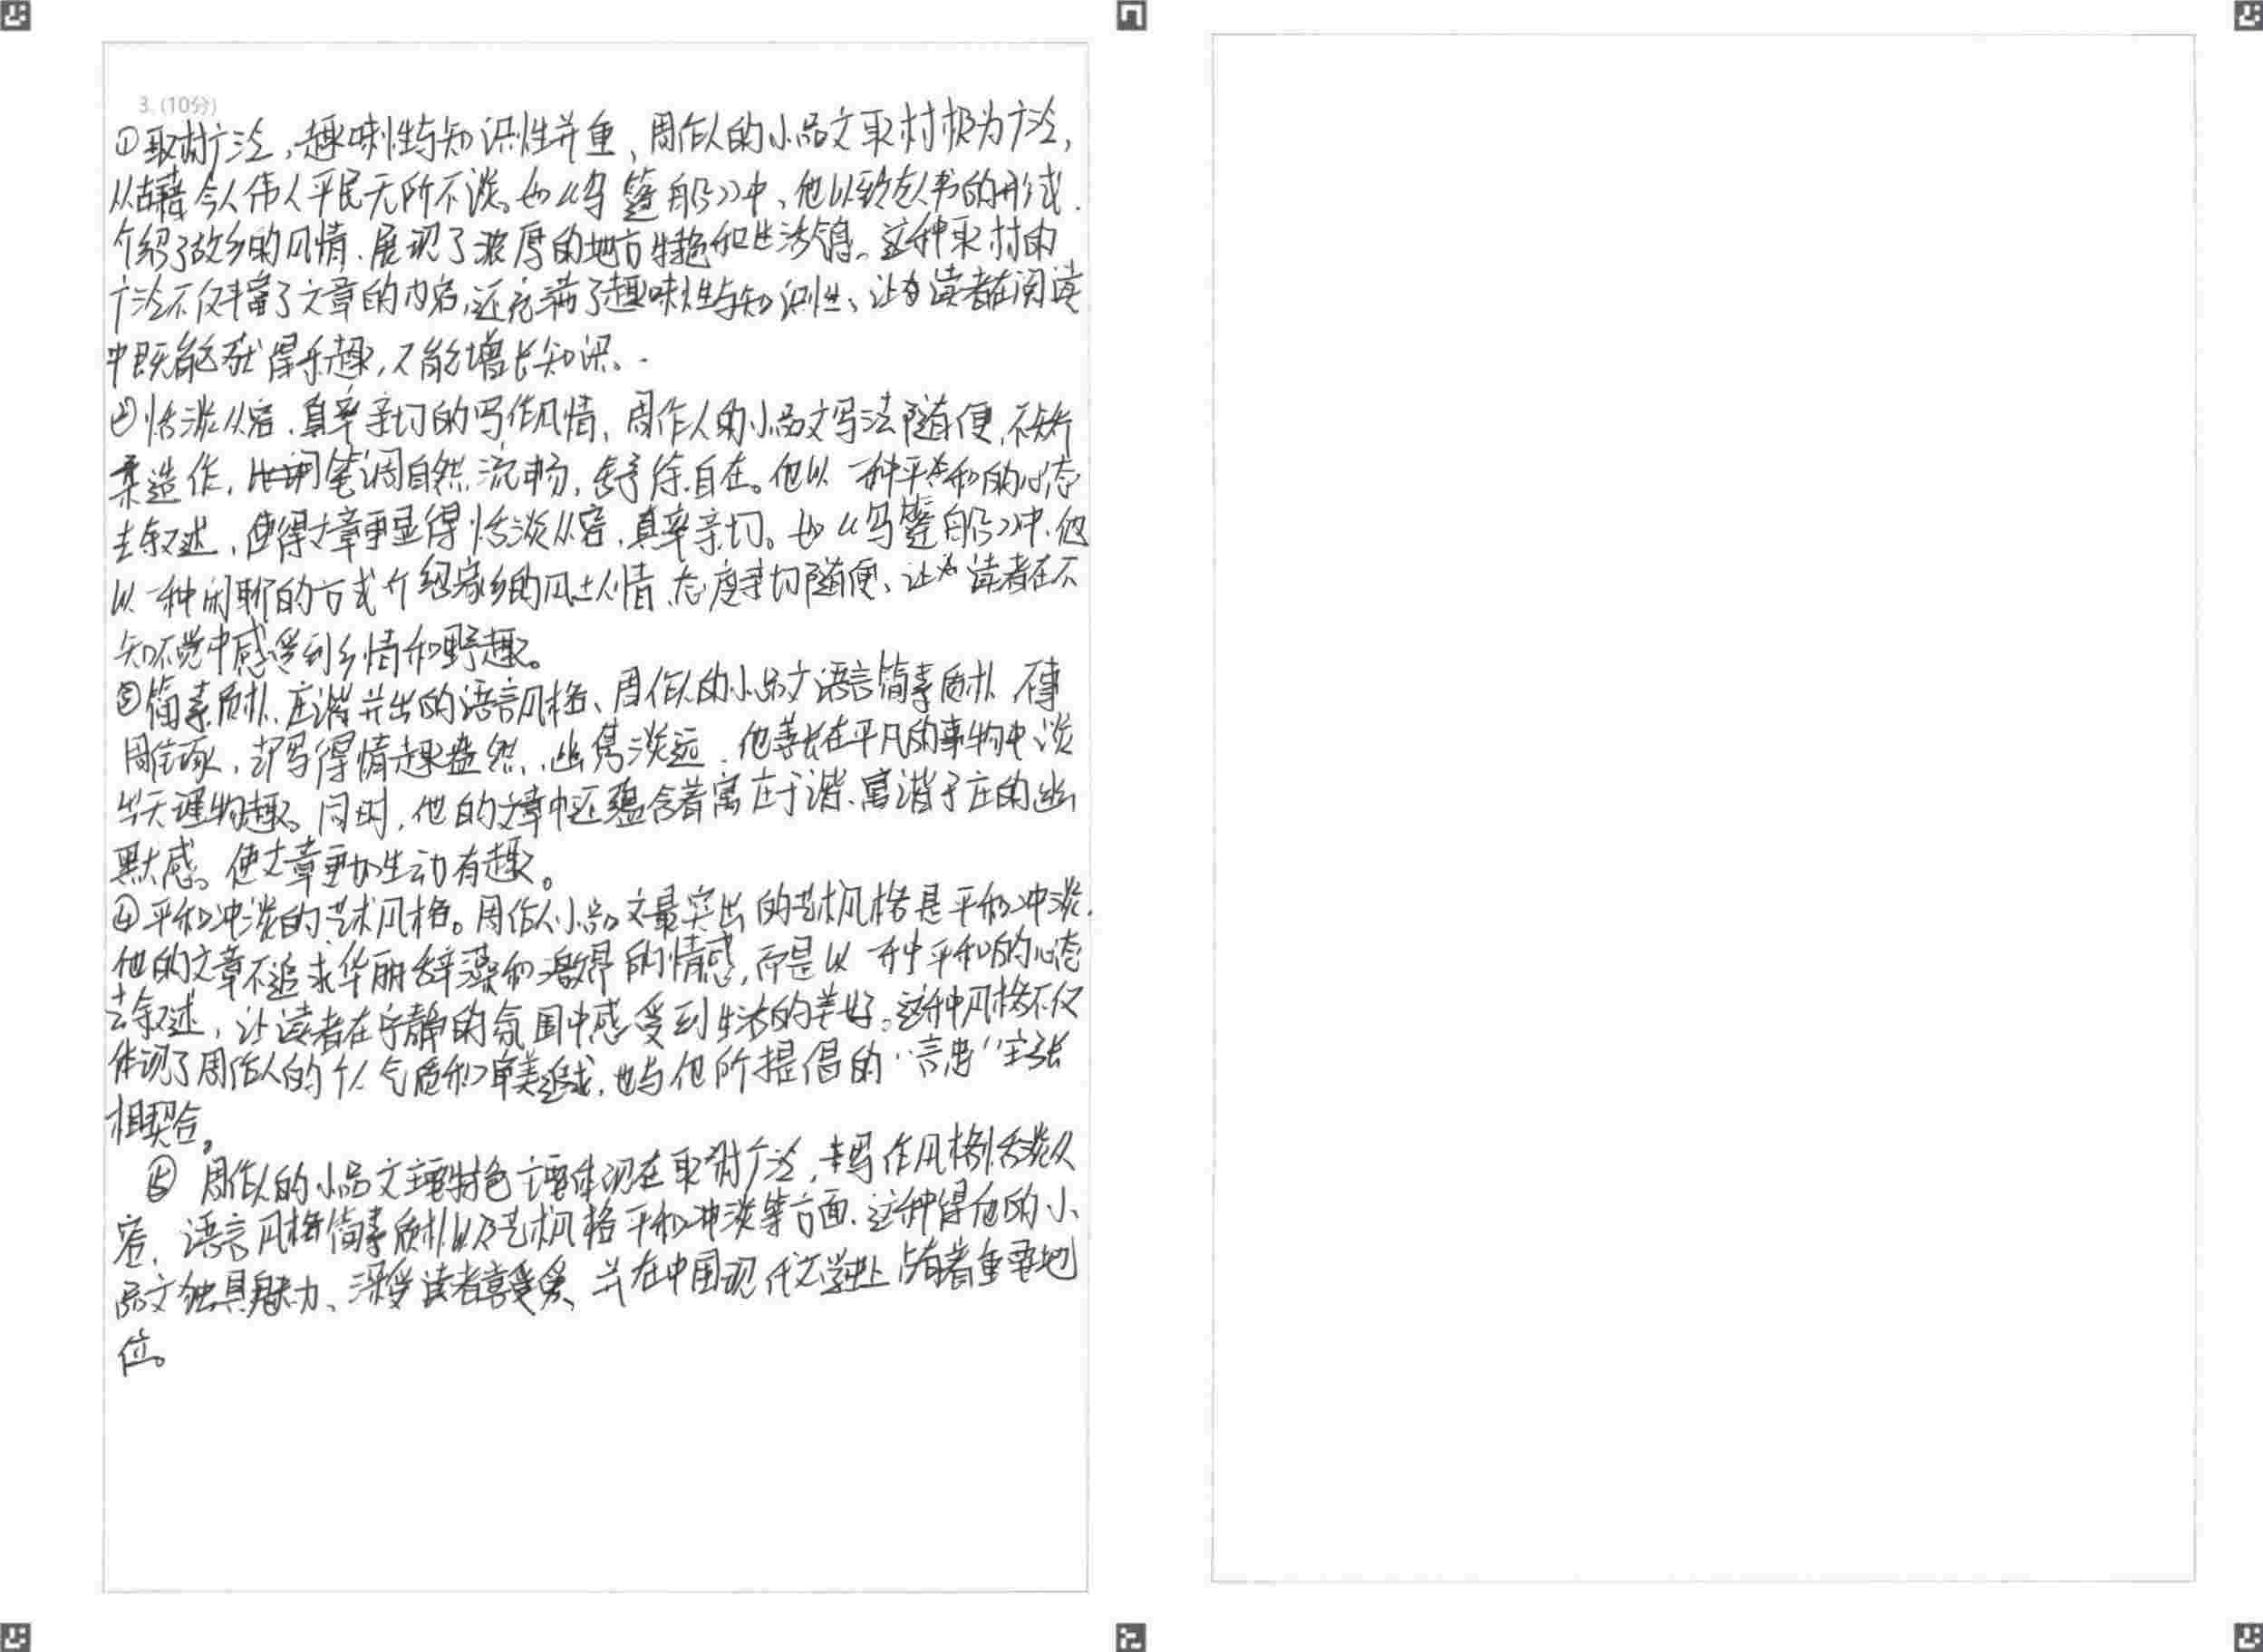 3. (10分)
①取材广泛,趣味性与知识性并重、周作人的小品文取材极为广泛,
从古籍今人伟人平民无所不谈。如《乌篷船》中、他以致友人书的形式.
介绍了故乡的风情、展现了浓厚的地方特色和生活气息。这种取材的
广泛不仅丰富了文章的内容,还充满了趣味性与知识性、让读者在阅读
中既能获得乐趣,又能增长知识。
②恬淡从容、真率亲切的写作风情、周作人的小品文写法随便,不矫
柔造作,笔调自然流畅,舒徐自在。他以一种平和的心态
去叙述,使得文章更显得恬淡从容、真率亲切。如《乌篷船》中、他
以一种闲聊的方式介绍家乡的风土人情、态度亲切随便、让读者在不
知不觉中感受到乡情和野趣。
③简素质朴、庄谐并出的语言风格、周作人的小品文语言简素质朴,不事
周琢,却写得情趣盎然、幽隽淡远.他善长在平凡的事物中谈
出天理物趣。同时,他的文章中还蕴含着寓庄于谐、寓谐于庄的幽
默感。使文章更加生动有趣。
④平和冲淡的艺术风格。周作人小品文最突出的艺术风格是平和冲淡.
他的文章不追求华丽辞藻和激昂的情感,而是以一种平和的心态
去叙述,让读者在宁静的氛围中感受到生活的美好。这种风格不仅
体现了周作人的个人气质和审美追求,也与他所提倡的“言志”主张
相契合。
⑤ 周作人的小品文主要特色主要体现在取材广泛,写作风格恬淡从
容、语言风格简素质朴以及艺术风格平和冲淡等方面.这种得他的小
品文独具魅力、深受读者喜爱、并在中国现代文学史上占有着重要地
位。